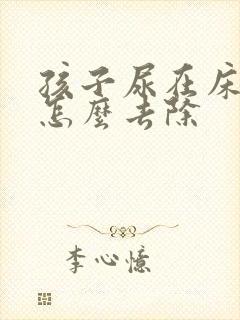 孩子尿在床
怎麼去除
李心憶